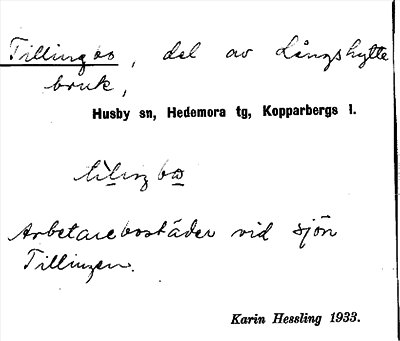 Tillingbo, del av Långshytte
bruk,
Husby sn, Hedemora tg, Kopparbergs l.
Arbetarebostäder vid sjön
Tillingen.
Karin Hessling 1933.